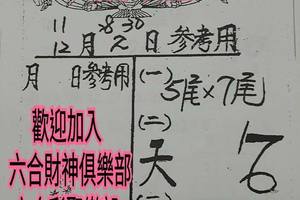 11 8:30
12月 2 日 参考用
月 日参考用
(一) 5尾×7尾
(二)
天 6
歡迎加入
六合財神俱樂部